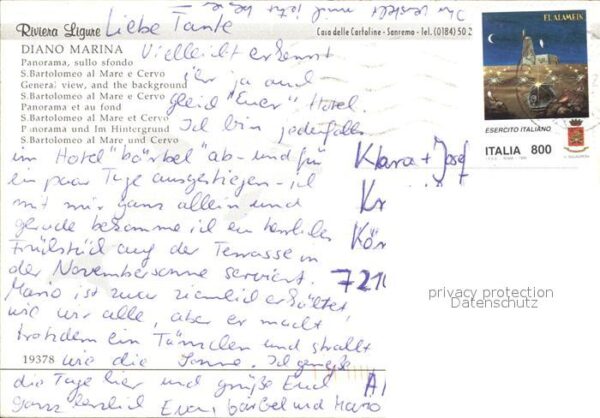 Riviera Ligure
DIANO MARINA
Panorama, sullo sfondo
S.Bartolomeo al Mare e Cervo
General view, and the background
S.Bartolomeo al Mare e Cervo
Panorama et au fond
S.Bartolomeo al Mare et Cervo
Panorama und Im Hintergrund
S.Bartolomeo al Mare und Cervo
Casa delle Cartoline - Sanremo - Tel. (0184) 50 2
Liebe Tante
Vielleicht erkennt
ihr ja auch
gleich "Euer" Hotel.
Ich bin jedenfalls
im Hotel "bärbel" ab- und für
ein paar Tage ausgestiegen - ich
mit mir ganz allein und
gerade bekomme ich ein herrliches
Frühstück auf der Terrasse in
der Novembersonne serviert.
Mario ist zwar ziemlich erkältet,
wie wir alle, aber er macht
trotzdem ein Tänzchen und strahlt
wie die Sonne. Ich genieße
die Tage hier und grüße Euch
ganz herzlich Eure bärbel und Mario
Klara + Josef
Kr
Kön
7210
A
EL ALAMEIN
ESERCITO ITALIANO
ITALIA 800
19378
privacy protection
Datenschutz